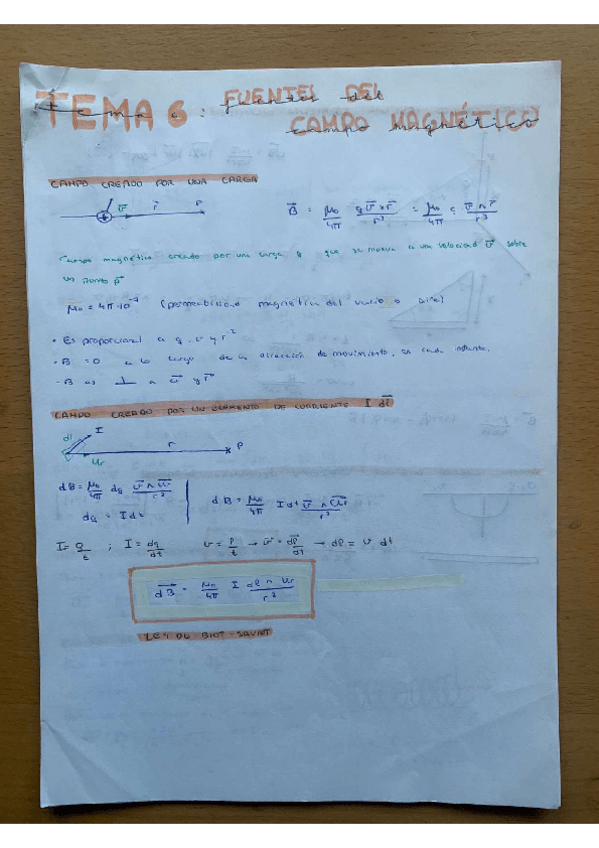 TEMA 6: FUENTES DEL CAMPO MAGNÉTICO
Tema 6: fuentes del campo magnético
CAMPO CREADO POR UNA CARGA
+ v⃗ r⃗ P
B⃗ = μ₀/4π q v⃗ × r⃗/r³ = μ₀/4π q v⃗ ∧ r⃗/r³
Campo magnético creado por una carga q que se mueve a una velocidad v⃗ sobre
un punto p⃗
μ₀ = 4π·10⁻⁷ (permeabilidad magnética del vacío o aire)
· Es proporcional a q, v y r⁻²
- B = 0 a lo largo de la dirección de movimiento, en cada instante.
- B es ⊥ a v⃗ y r⃗
CAMPO CREADO POR UN ELEMENTO DE CORRIENTE I dl⃗
dl I r P
Ur
dB = μ₀/4π dq v⃗ ∧ Ur⃗/r²
dq = I dt
dB = μ₀/4π I dt v⃗ ∧ Ur⃗/r²
I = Q/t ; I = dq/dt v = l/t → v⃗ = dl⃗/dt → dl = v dt
dB⃗ = μ₀/4π I dl ∧ Ur/r²
LEY DE BIOT-SAVART